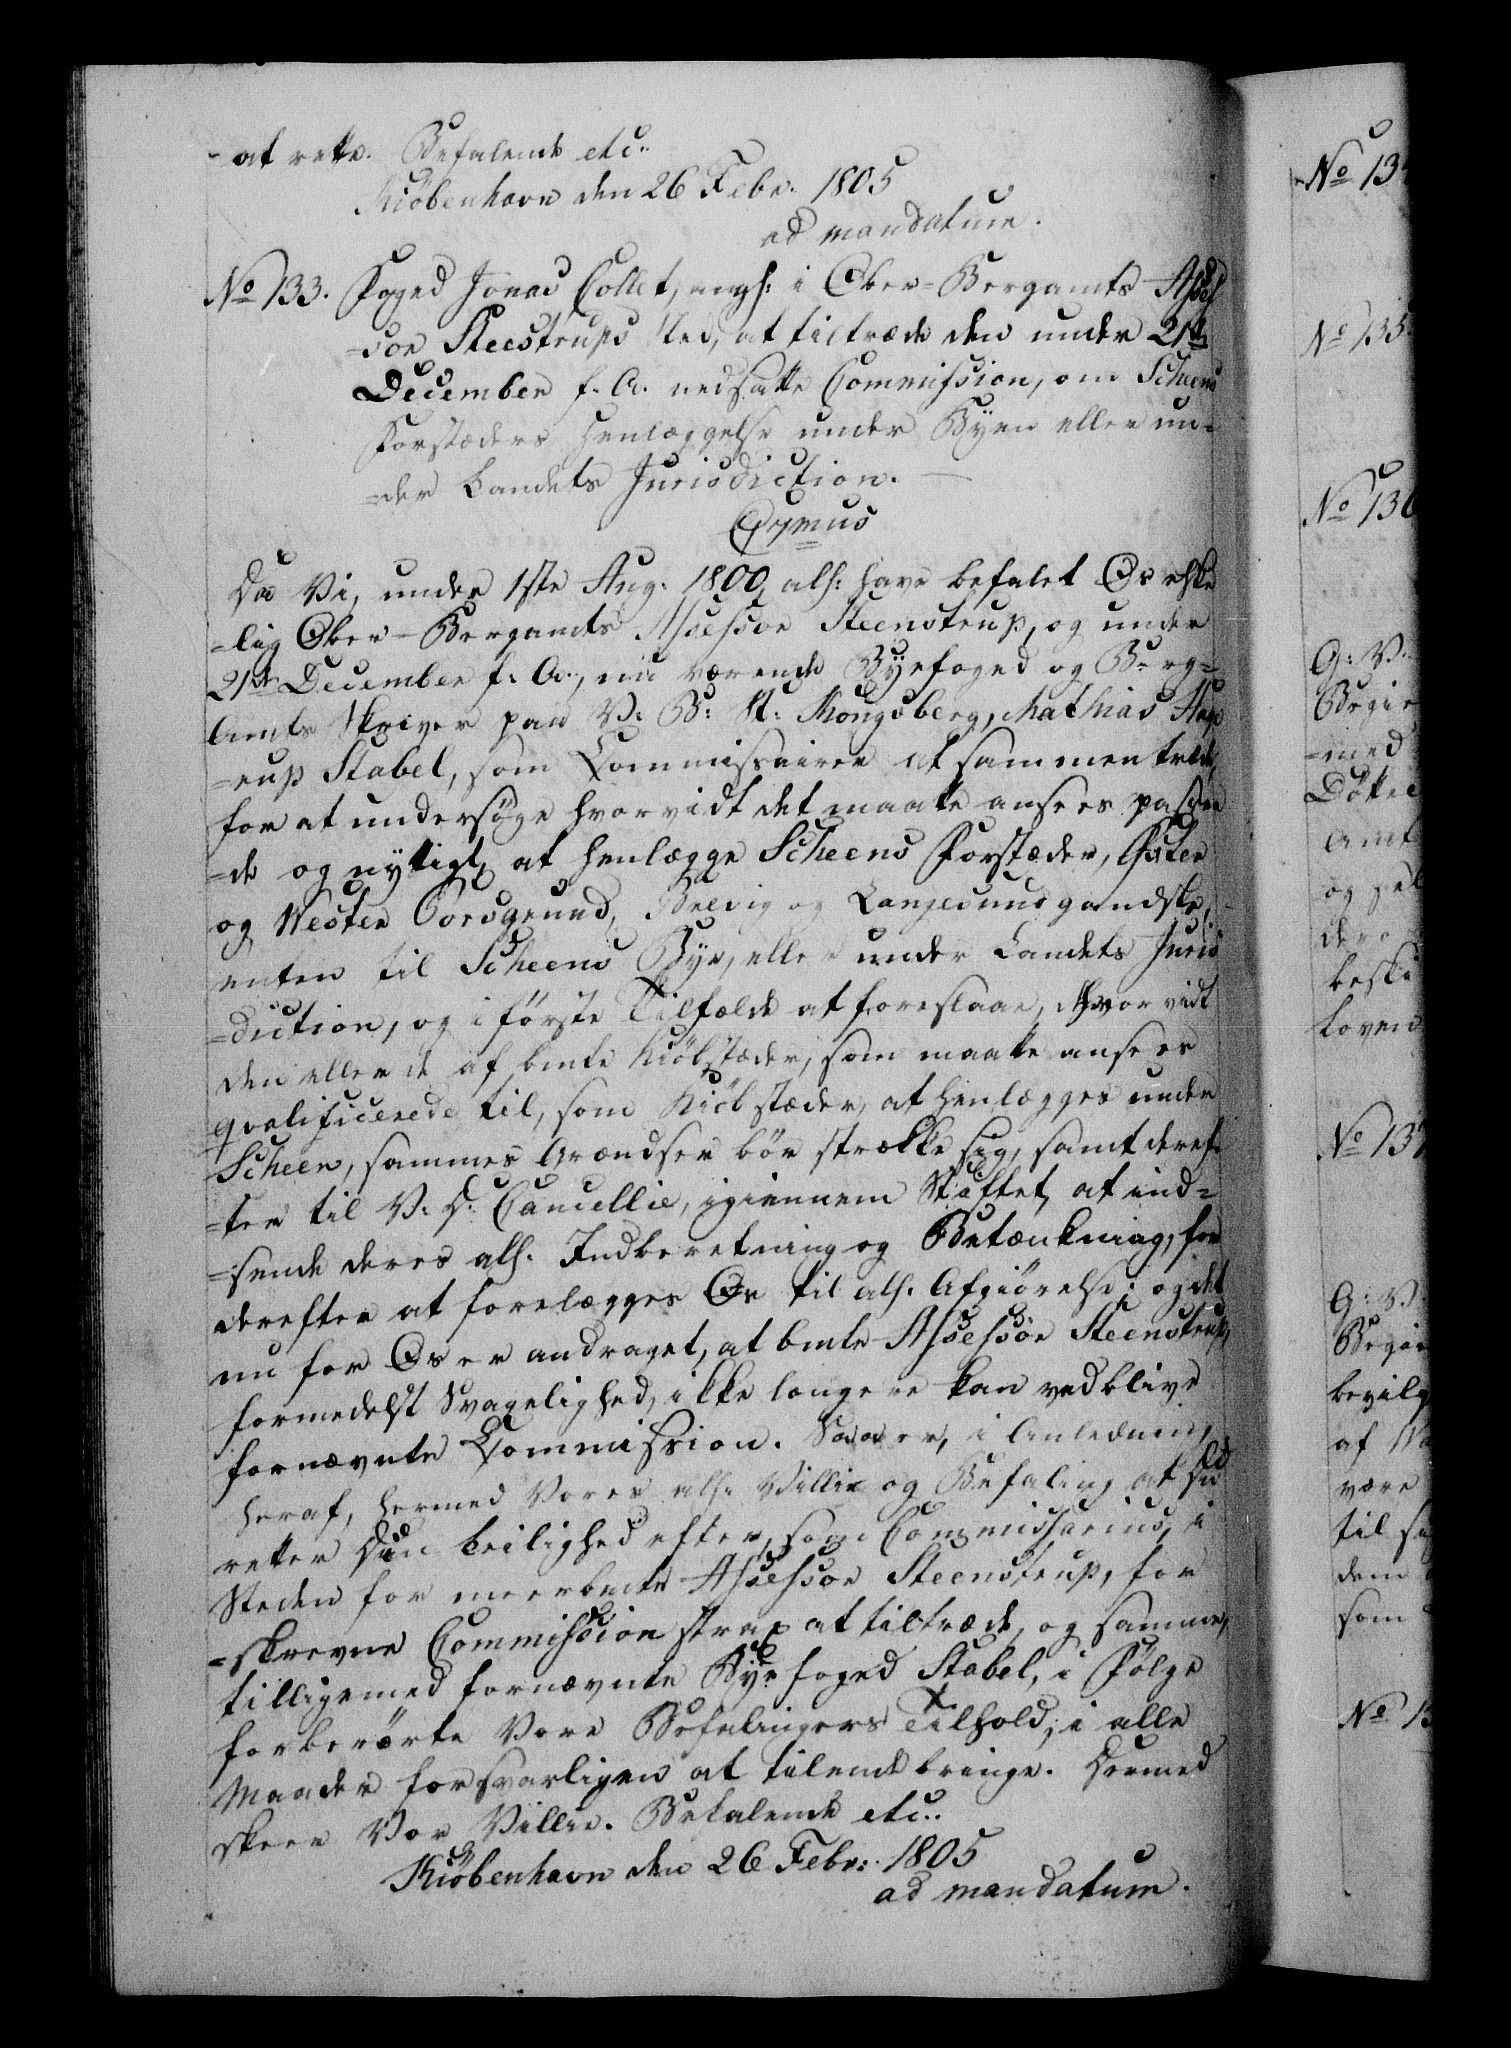 at rette. Befalende etc.
Kiöbenhavn den 26 Febr. 1805
ad mandatum.
No 133. Foged Jonas Collet, angh: i Ober-Bergamts Asses
sor Steenstrups Sted, at tiltræde den under 21de
December f. A. nedsatte Commission, om Scheens
Forstæders Henlæggelse under Byen eller un-
=der Landets Jurisdiction.
C 7mus
Da Vi, under 1ste Aug. 1800, alh: have befalet Os elske
=lig Ober-Bergamts Assessor Steenstrup, og under
21de December f. A., nu værende Byefoged og Berg=
Amts Skriver paa V: B: St: Kongsberg, Mathias Hage
=rup Stabel, som Commissairer at sammentrede,
for at undersøge hvorvidt det maatte ansees passen
=de og nyttigt, at henlægge Scheens Forstæder, Øster
og Wester Porsgrund, Brevig og Langesund gandske,
enten til Scheens Bye, eller under Landets Juris
=diction, og i förste Tilfælde at foreslaae, hvorvidt
den eller de af bmte Kiöbstæder, som maatte ansees
qvalificerede til, som Kiöbstæder, at henlægges under
Scheen, sammes Grændser bör strække sig, samt deref-
=ter til V. D. Cancellie, igiennem Stiftet, at ind=
=sende deres alh. Indberetning og Betænkning, for
derefter at forelægges Os til alh. Afgiörelse; og det
nu for Os er andraget, at bmte Assessor Steenstrup,
formedelst Svagelighed, ikke længere kan vedblive
fornævnte Commission. Saa er, i Anledning
heraf, hermed Vores alh. Villie og Befaling at Du
retter Din Leilighed efter, som Commissarius, i
Steden for meerbmte Assessor Steenstrup, for
=skrevne Commission strax at tiltræde, og samme,
tilligemed fornævnte Byefoged Stabel, i Fölge
forberörte Vore Befalingers Tilhold, i alle
Maader forsvarligen at tilendebringe. Dermed
skeer Vor Villie. Befalende etc.
Kiöbenhavn den 26 Febr: 1805
ad mandatum.
No 13
No 135
No 136
G: V.
Begie
=med
Döttre
Amt
og sel
dero
beski
loven
No 137
G: V.
Begie
bevilg
af
være
til
dem
som
No 13